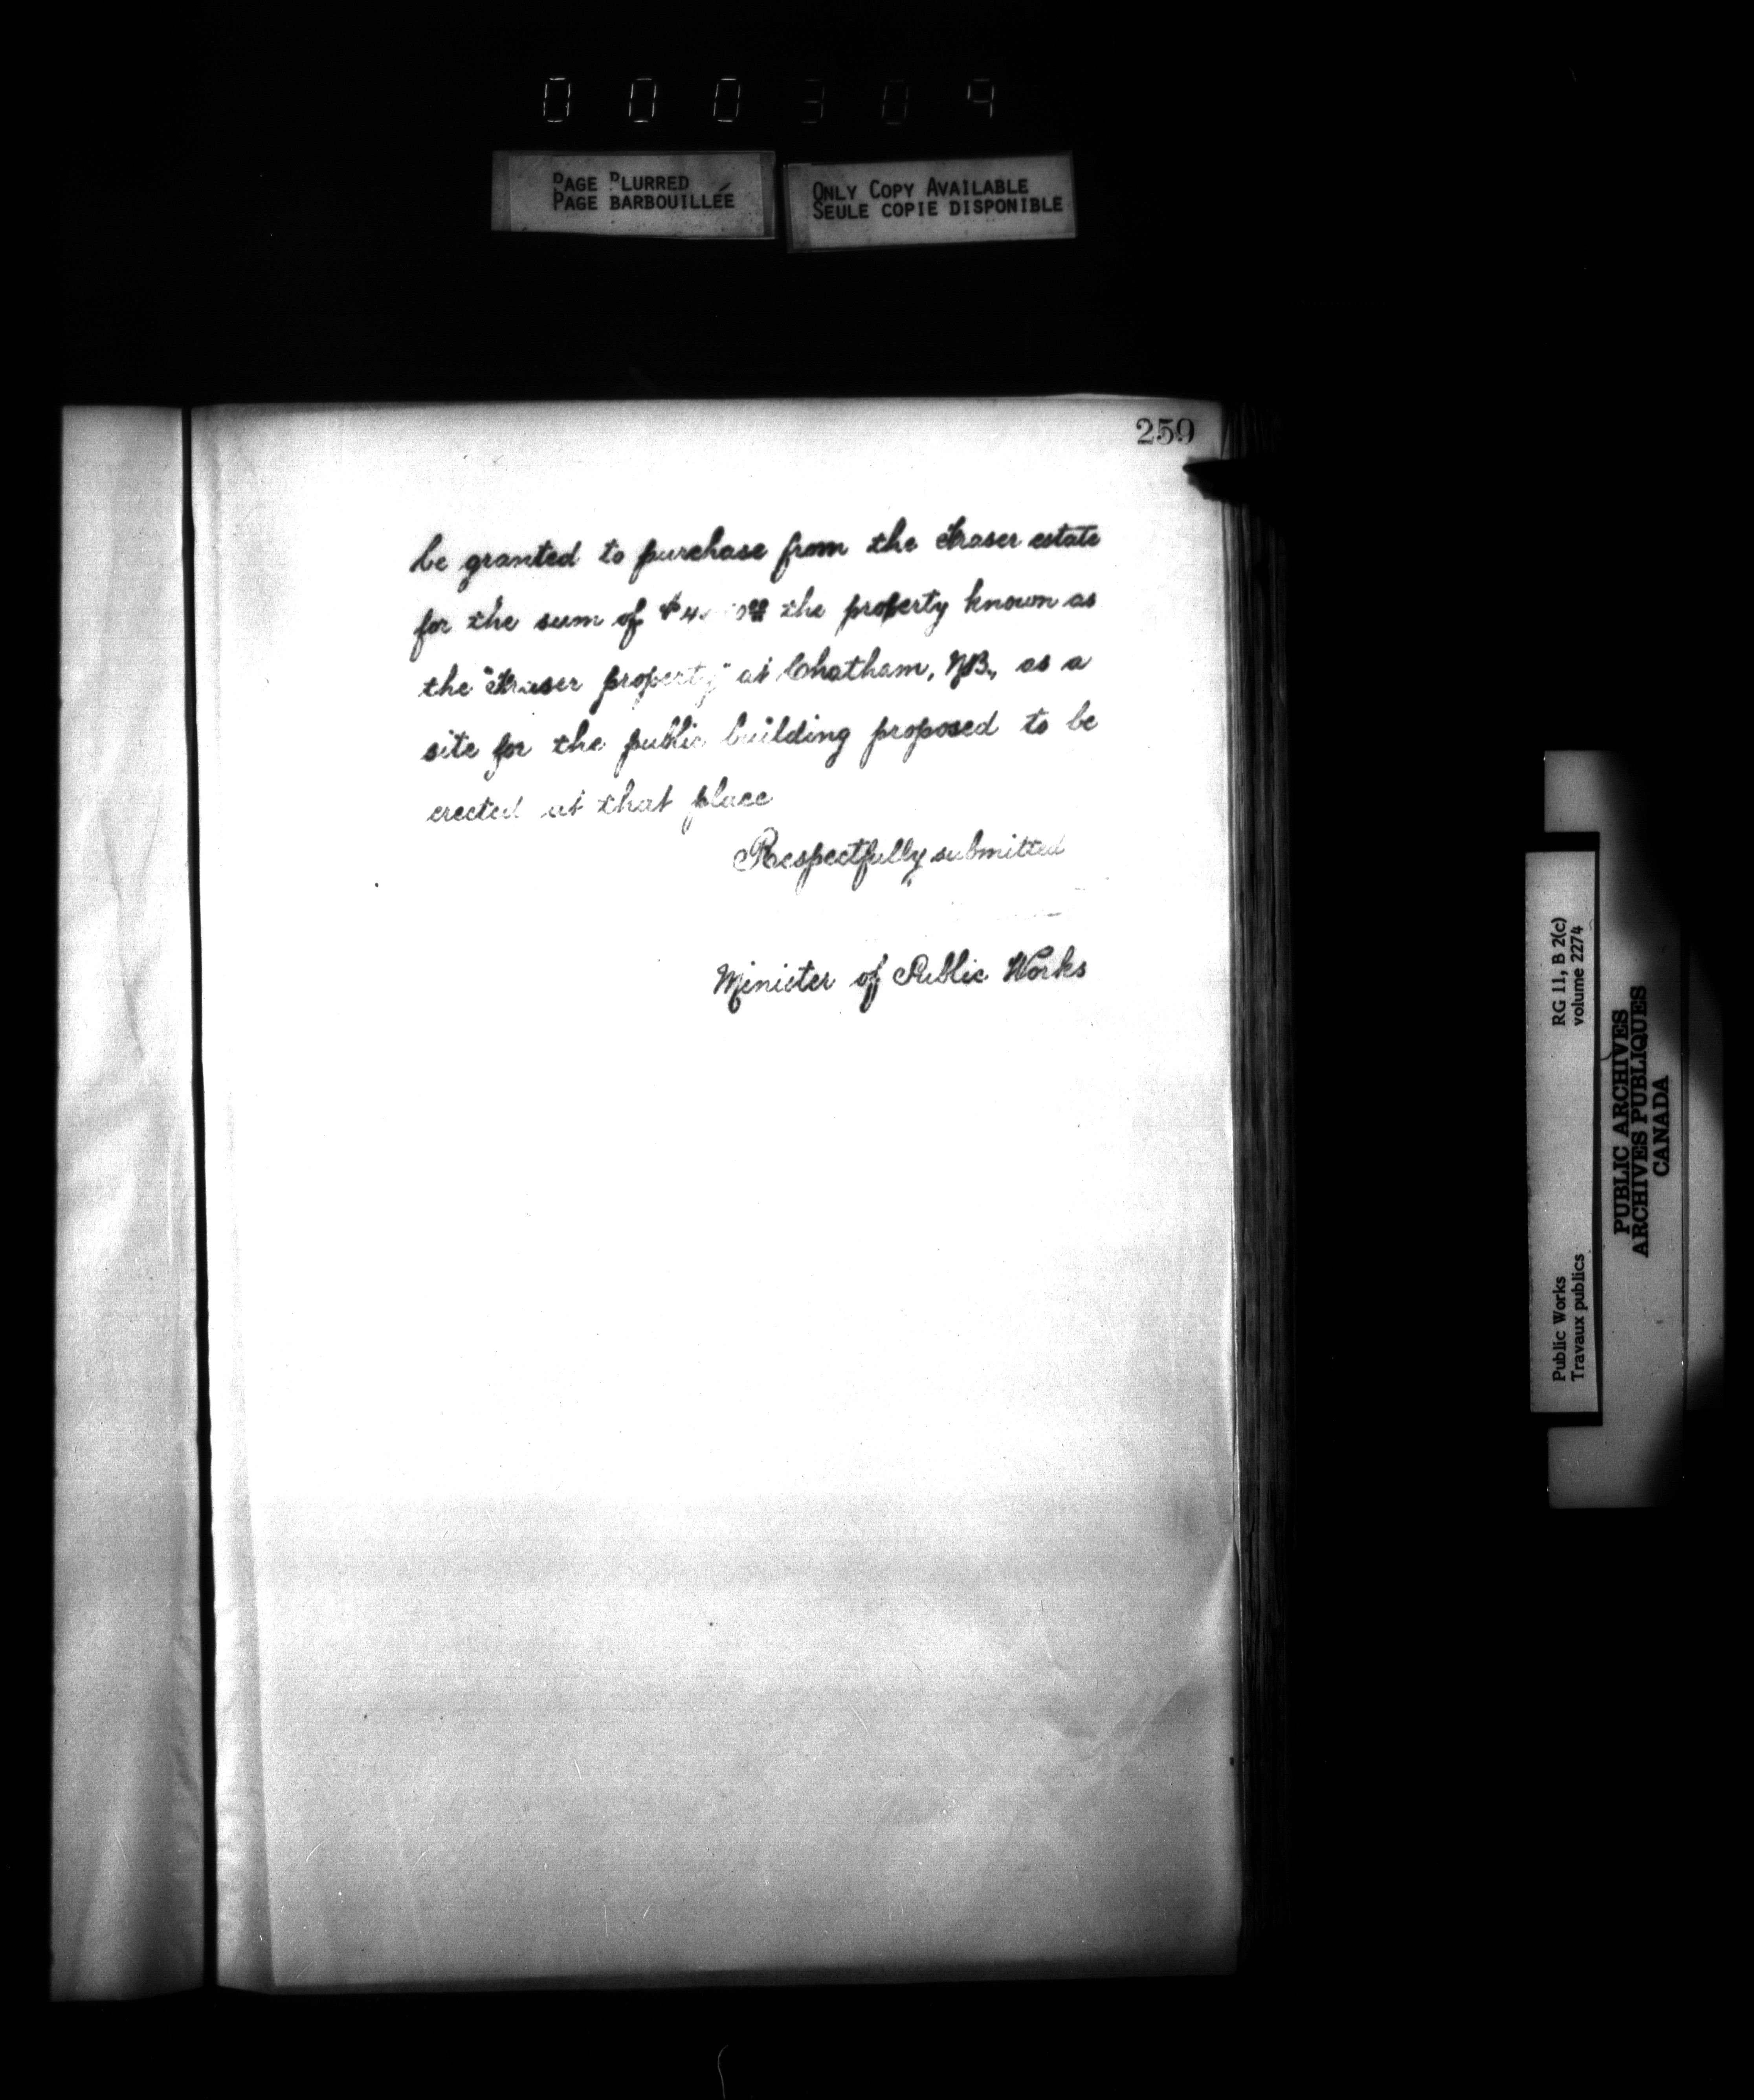 000309
PAGE BLURRED
PAGE BARBOUILLÉE
ONLY COPY AVAILABLE
SEULE COPIE DISPONIBLE
259
be granted to purchase from the Fraser estate
for the sum of the property known as
the "Fraser property" at Chatham, N.B., as a
site for the public building proposed to be
erected at that place
Respectfully submitted
Minister of Public Works
Public Works
Travaux publics
RG 11, B 2(c)
volume 2274
PUBLIC ARCHIVES
ARCHIVES PUBLIQUES
CANADA